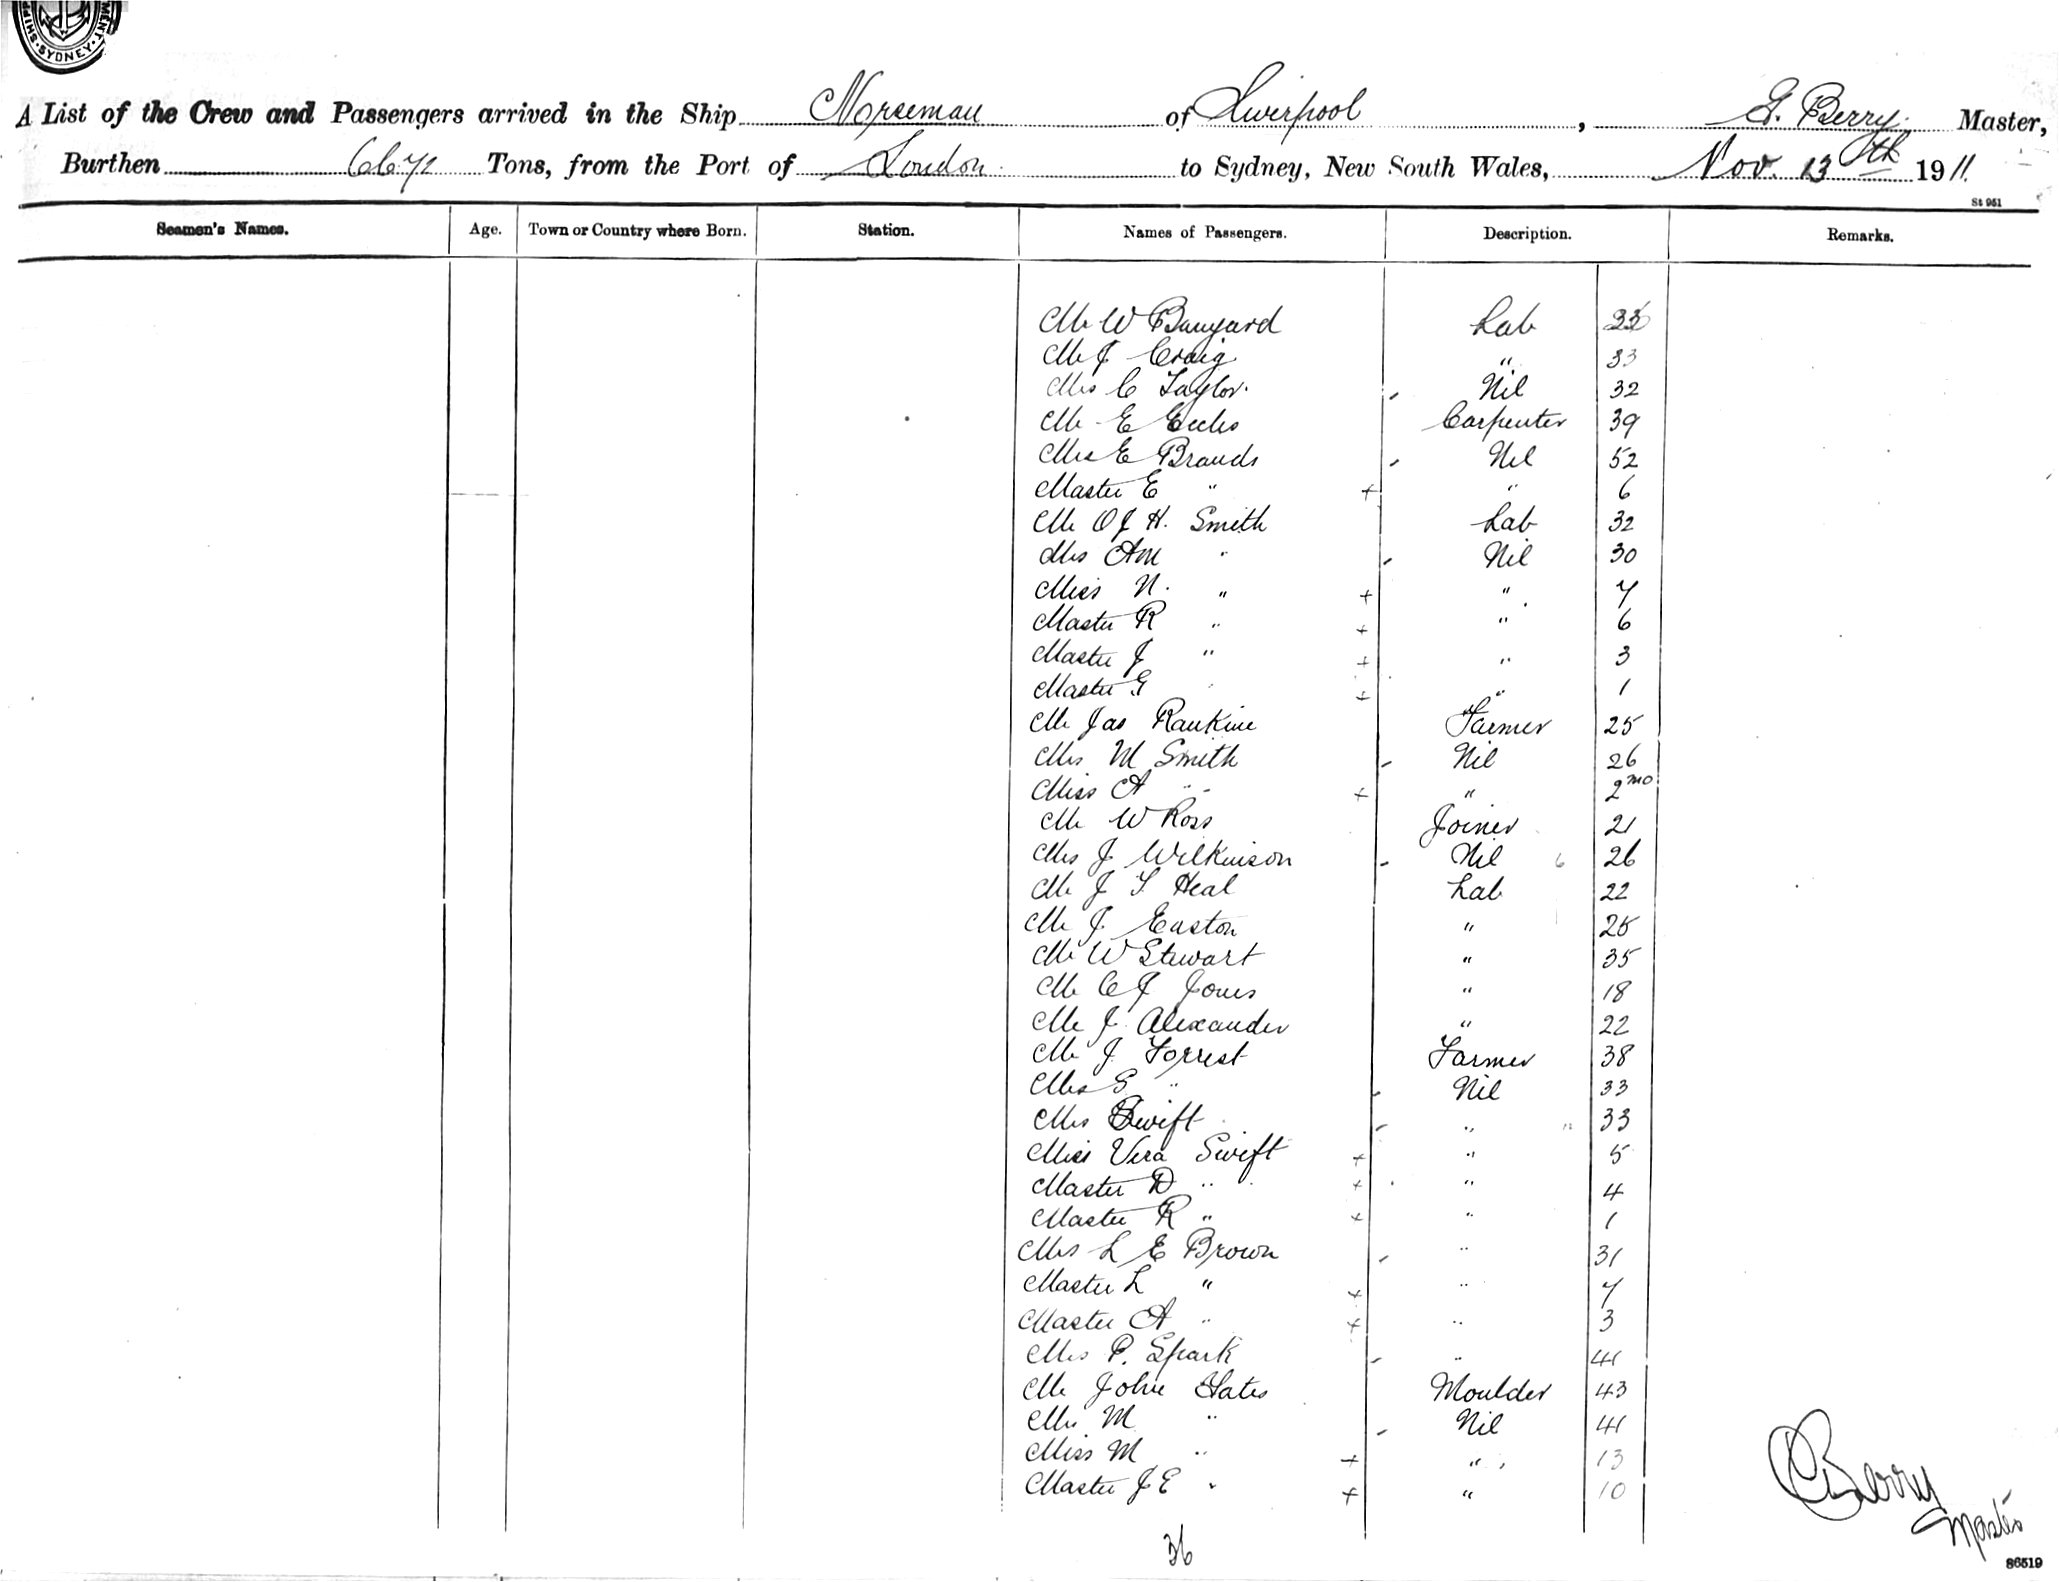 SHIP MENT
· SYDNEY ·
A List of the Crew and Passengers arrived in the Ship Norseman of Liverpool, G. Berry. Master,
Burthen Tons, from the Port of London. to Sydney, New South Wales, Nov. 13th 1911.
St 961
Seamen's Names. Age. Town or Country where Born. Station. Names of Passengers. Description. Remarks.
Mr W Banyard Lab
Mr J. Craig " 33
Mrs C Taylor. - Nil 32
Mr E Eccles Carpenter 39
Mrs E Brands - Nil 52
Master E " + " 6
Mr O J H. Smith Lab 32
Mrs AM " - Nil 30
Miss N. " + " 7
Master R " + " 6
Master J " + " 3
Master G " + " 1
Mr Jas Rankine Farmer 25
Mrs M Smith - Nil 26
Miss A " + " 2 mo
Mr W Ross Joiner 21
Mrs J Wilkinson - Nil 26
Mr J T Heal Lab 22
Mr J. Easton " 25
Mr W Stewart " 35
Mr C J Jones " 18
Mr J. Alexander " 22
Mr J Forrest Farmer 38
Mrs G " - Nil 33
Mrs Swift - " 33
Miss Vera Swift + " 5
Master D " + " 4
Master R " + " 1
Mrs L E Brown - " 31
Master L " + " 7
Master A " + " 3
Mrs P. Spark - " 41
Mr John Yates Moulder 43
Mrs M " - Nil 41
Miss M " + " 13
Master J E " + " 10
36
Berry
Master
86519